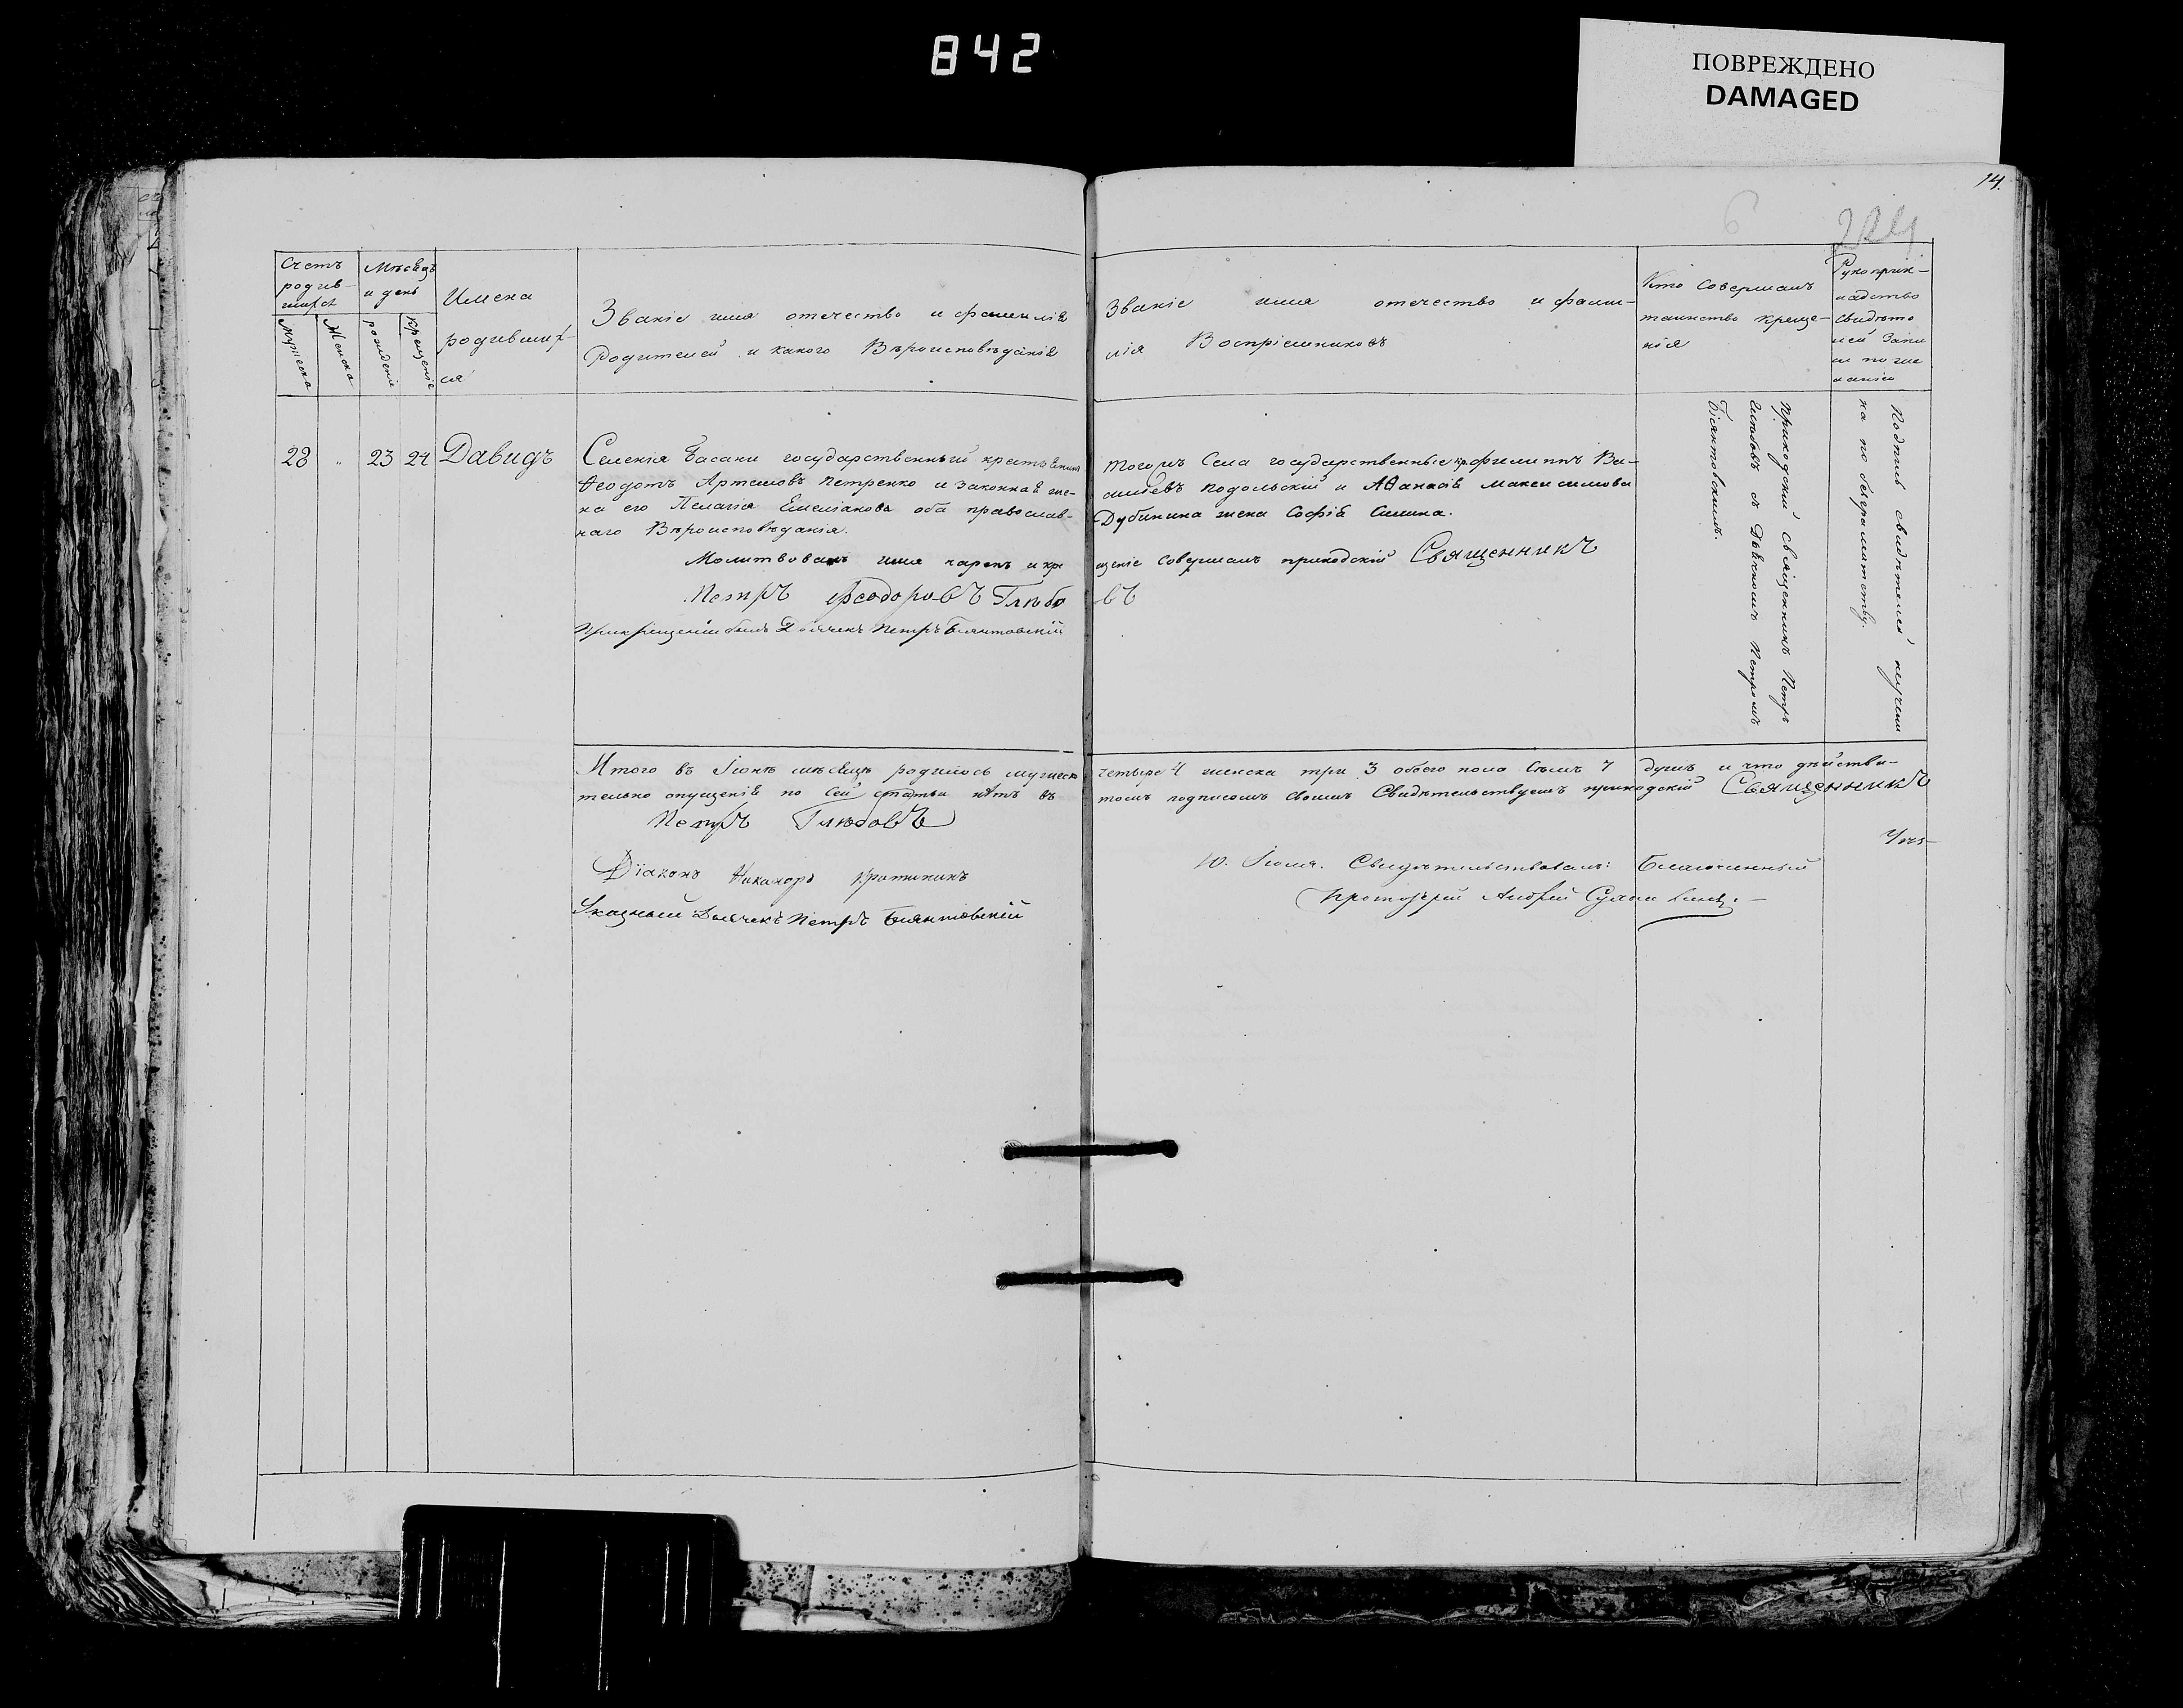 842
ПОВРЕЖДЕНО
DAMAGED
14.
6
Счетъ
родив-
шихся
Мѣсяцъ
и день
Мужеска
Женска
рожденія
крещеніе
Имена
родивших-
ся
Званіе имя отечество и фамилія
Родителей и какого Вѣроисповѣданія
Званіе имя отечество и фами-
лія Воспріемниковъ
Кто совершалъ
таинство креще-
нія
Рукоприк-
ладство
свидѣте
лей запи
си по же
ланію
28 " 23 24 Давидъ
Селенія Басани государственный крестьянинъ
Ѳеодотъ Артемовъ Петренко и законная же-
на его Пелагія Емеліанова оба православ-
наго Вѣроисповѣданія.
Молитвовалъ имя нарекъ и кре
Петръ Феодоровъ Глѣбо
При крещеніи былъ Дьячекъ Петръ Біянтовскій
того жъ Села государственные кр. Филиппъ Ва-
силіевъ Подольскій и Аѳанасія Максимова
Дубинина жена Софія Силина.
щеніе совершалъ приходскій Священникъ
въ
Приходскій священникъ Петръ
Глѣбовъ съ Дьячкомъ Петромъ
Біянтовскимъ.
Подпись свидѣтелей неучене
на по безграмотству.
Итого въ Іюнѣ мѣсяцѣ родилось мужеска четыре 4 женска три 3 обоего пола семь 7 душъ и что дѣйстви-
тельно опущенія по сей статьи нѣтъ въ томъ подписомъ своимъ Свидѣтельствуемъ приходскій Священникъ
Петръ Глѣбовъ
Діаконъ Никаноръ Кратининъ
Указный Дьячекъ Петръ Біянтовскій
10. Іюля. Свидѣтельствовалъ: Благочинный
Протоіерей Андрей